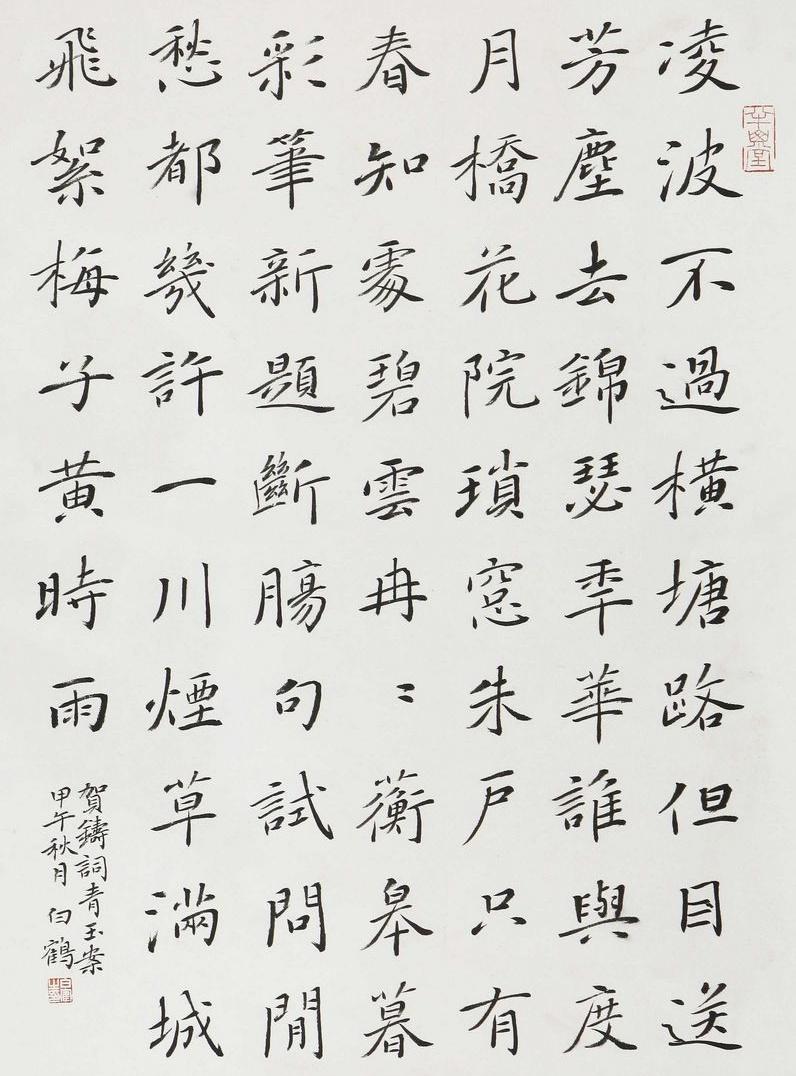 凌波不過橫塘路但目送
芳塵去錦瑟秊華誰與度
月橋花院瑣窓朱戶只有
春知處碧雲冉〻蘅皋暮
彩筆新題斷腸句試問閒
愁都幾許一川煙草滿城
飛絮梅子黃時雨
賀鑄詞青玉案
甲午秋月白鶴